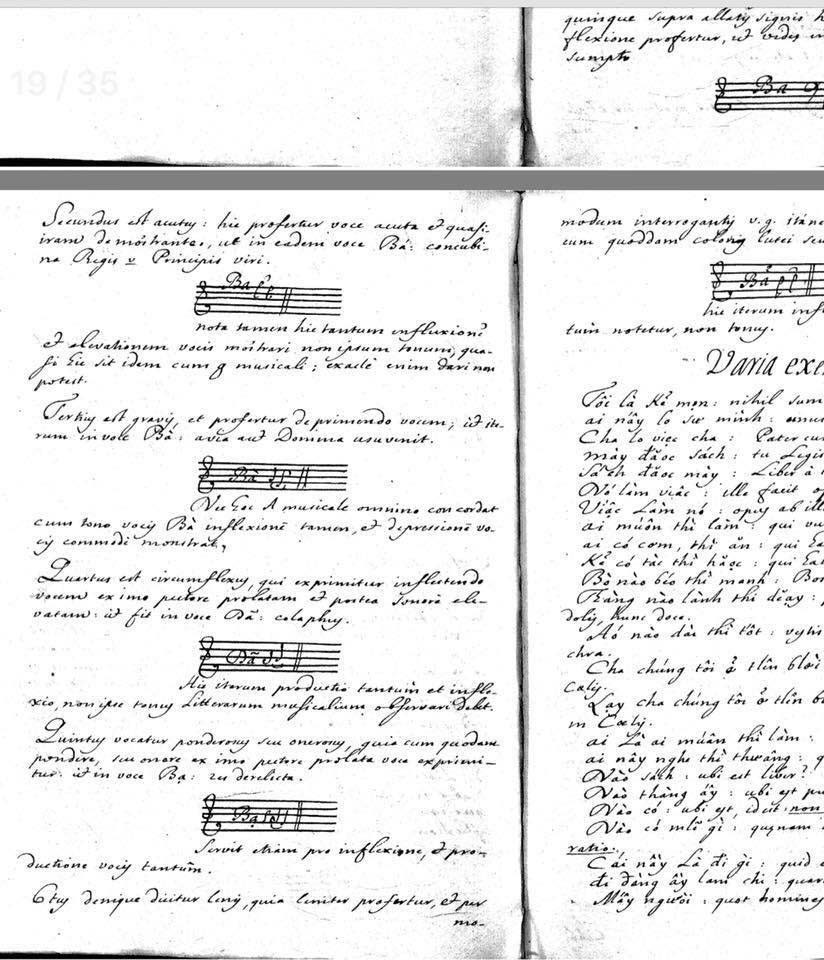 19 / 35
quinque supra allatis signis
flexione profertur, ut vides in
sumpto
Ba
Secundus est acutus: hic profertur voce acuta et quasi-
iram demõstrante, ut in eadem voce Bá: concubi-
na Regis v Principis viri.
Ba
nota tamen hic tantum influxionẽ
et elevationem vocis mõstrari non ipsum tonum, qua-
si hic sit idem cum g musicali; exacte enim dari non
potest.
Tertius est gravis, et profertur deprimendo vocem; ut ite-
rum in voce Bà: avia aut Domina usu venit.
Bà
Nec hoc A musicale omnino concordat
cum tono vocis Bà inflexionẽ tamen, et depressionẽ vo-
cis commode monstrat,
Quartus est circumflexus, qui exprimitur inflectendo
vocem ex imo pectore prolatam et postea sonorẽ ele-
vatam: ut fit in voce Bã: colaphus.
Bã
Hic iterum productio tantum et infle-
xio, non ipse tonus Litterarum musicalium observari debet.
Quintus vocatur ponderosus seu onerosus, quia cum quodam
pondere, seu onere ex imo pectore prolata voce exprimi-
tur: ut in voce Bạ: res derelicta.
Bạ
Servit etiam pro inflexione, et pro-
ductione vocis tantum.
6tus denique dicitur lenis, quia leniter profertur, et per
mo-
modum interrogantis v.g. itáne
cum quoddam coloris lutei seu
Bả
hic iterum infl
tum notetur, non tonus.
Varia exe
Tôi là Kẻ mọn: nihil sum
ai nấy lo sự mình: unus
Cha lo việc cha: Pater cu
mầy đăọc sách: tu Legis
Sách đăọc mầy: Liber à
Nó làm việc: ille facit o
Việc Làm nó: opus ab ill
ai muốn thì làm: qui vu
ai có cơm, thì ăn: qui ha
Kẻ có tác thì hăọc: qui ha
Bò nào béo thì mạnh: Bo
Thàng nào lành thì dĕạy:
dolis, hunc doce.
Aó nào dài thì tôt: vestis
chra.
Cha chúng tôi ở tlên blời
Cælis.
Lạy cha chúng tôi ở tlên b
in Cælis.
ai Là ai muấn thì làm:
ai nấy nghe thì thương: q
Nào sách: ubi est liber?
Nào thàng ấy: ubi est pu
Nào có: ubi est, id est non
Nào có mlẽ gì: quænam
ratio.
Cái nầy Là đí gì: quid e
đi đàng ấy làm chi: quar
Mấy người: quot homines